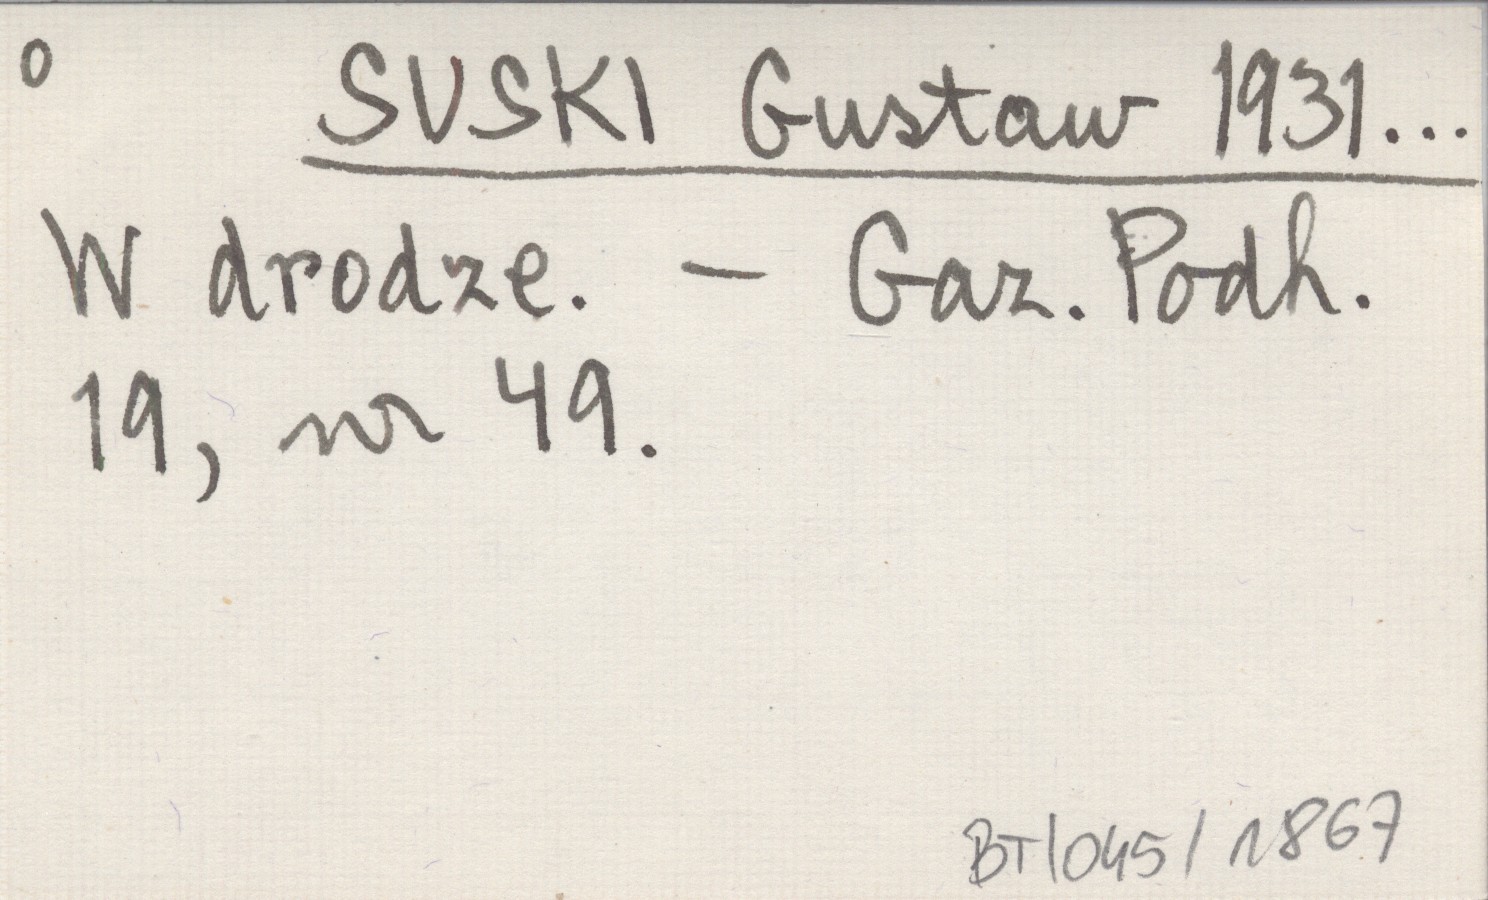 o SUSKI Gustaw 1931...
W drodze. - Gaz. Podh.
19, nr 49.
BT/045/1867